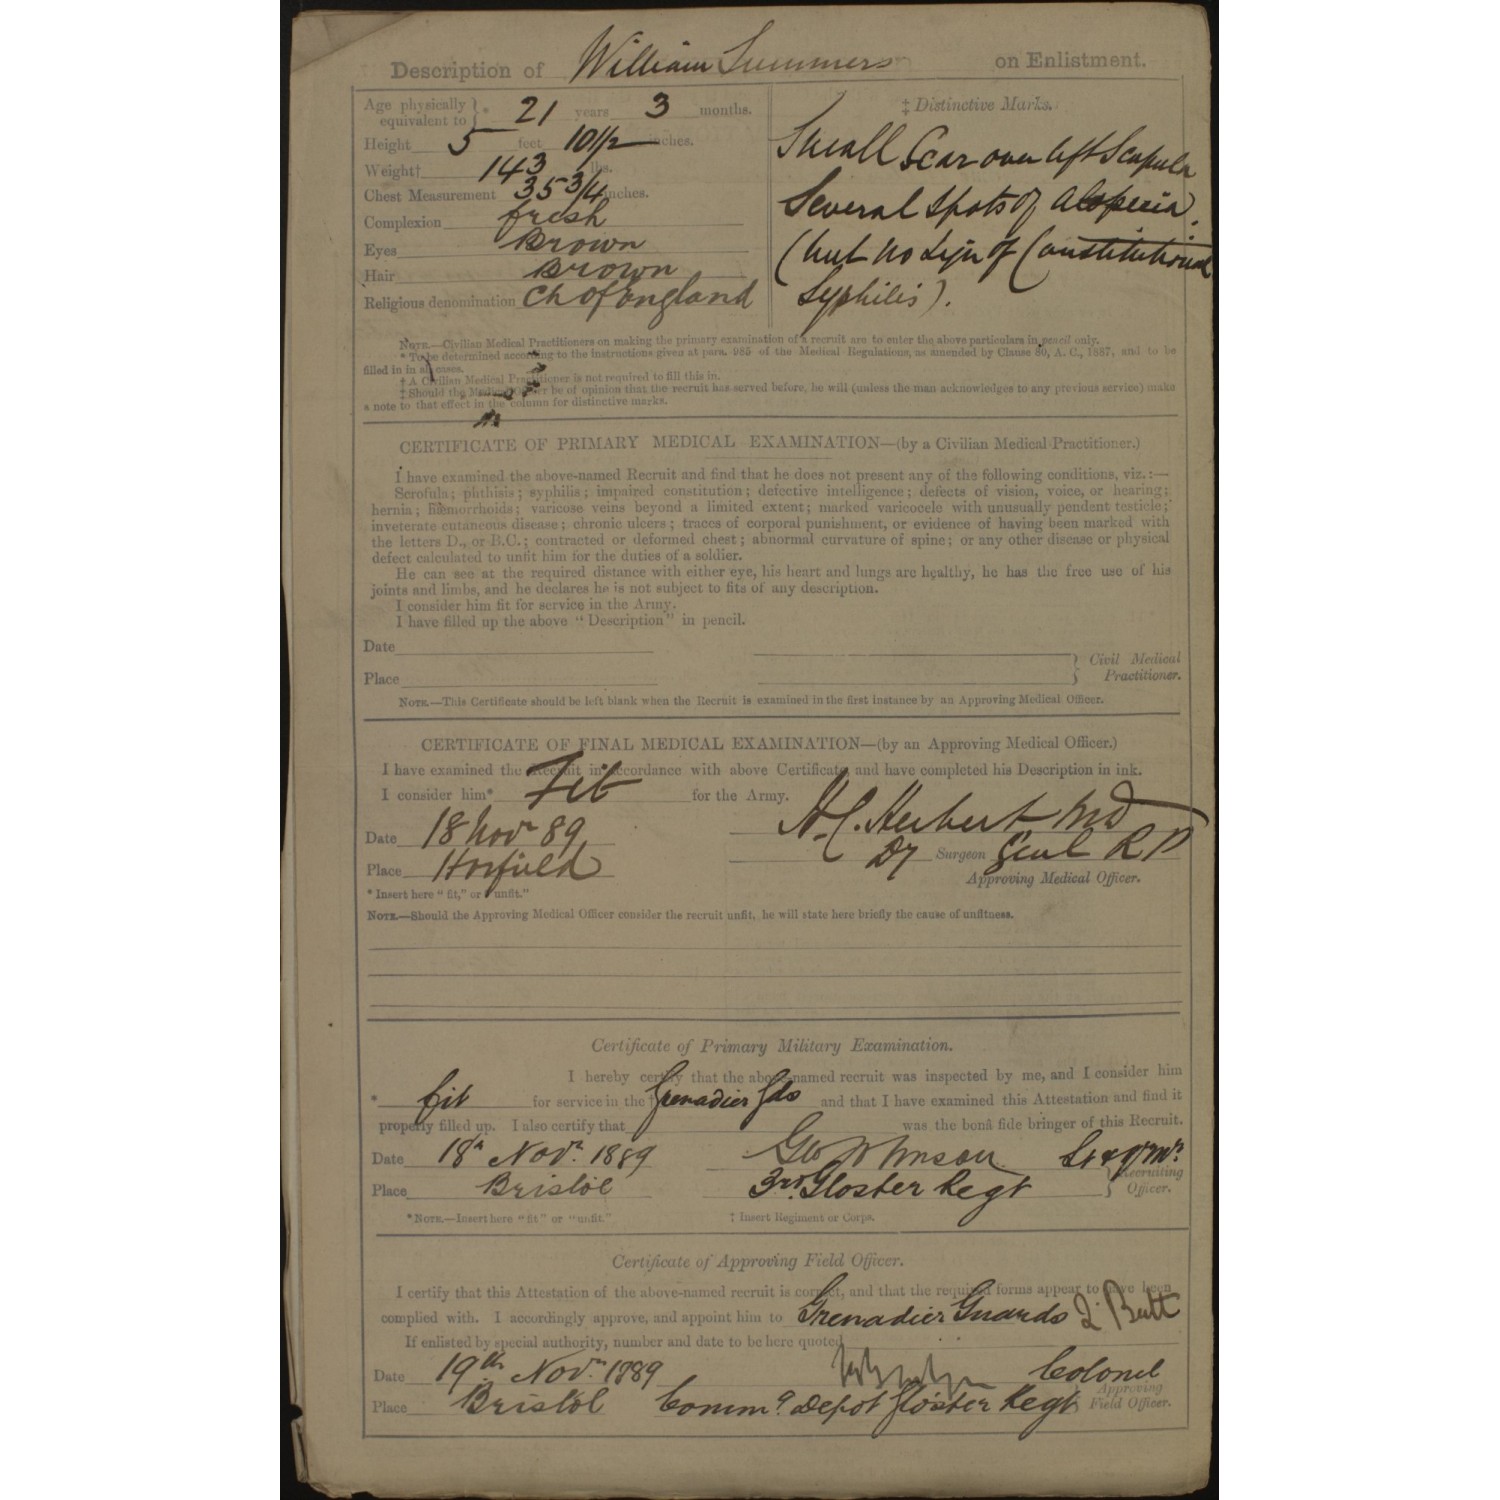 Description of William Summers on Enlistment.
Age physically equivalent to }* 21 years 3 months.
Height 5 feet 10 1/2 inches.
Weight† 143 lbs.
Chest Measurement 35 3/4 inches.
Complexion fresh
Eyes Brown
Hair Brown
Religious denomination Ch of England
‡ Distinctive Marks.
Small Scar over left Scapula
Several spots of Alopecia.
(but no sign of Constitutional
Syphilis).
NOTE.—Civilian Medical Practitioners on making the primary examination of a recruit are to enter the above particulars in pencil only.
* To be determined according to the instructions given at para. 985 of the Medical Regulations, as amended by Clause 80, A. C., 1887, and to be
filled in in all cases.
† A Civilian Medical Practitioner is not required to fill this in.
‡ Should the Medical Officer be of opinion that the recruit has served before, he will (unless the man acknowledges to any previous service) make
a note to that effect in the column for distinctive marks.
CERTIFICATE OF PRIMARY MEDICAL EXAMINATION—(by a Civilian Medical Practitioner.)
I have examined the above-named Recruit and find that he does not present any of the following conditions, viz.:—
Scrofula; phthisis; syphilis; impaired constitution; defective intelligence; defects of vision, voice, or hearing;
hernia; hæmorrhoids; varicose veins beyond a limited extent; marked varicocele with unusually pendent testicle;
inveterate cutaneous disease; chronic ulcers; traces of corporal punishment, or evidence of having been marked with
the letters D., or B.C.; contracted or deformed chest; abnormal curvature of spine; or any other disease or physical
defect calculated to unfit him for the duties of a soldier.
He can see at the required distance with either eye, his heart and lungs are healthy, he has the free use of his
joints and limbs, and he declares he is not subject to fits of any description.
I consider him fit for service in the Army.
I have filled up the above "Description" in pencil.
Date
Place
} Civil Medical Practitioner.
NOTE.—This Certificate should be left blank when the Recruit is examined in the first instance by an Approving Medical Officer.
CERTIFICATE OF FINAL MEDICAL EXAMINATION—(by an Approving Medical Officer.)
I have examined the Recruit in accordance with above Certificate, and have completed his Description in ink.
I consider him* Fit for the Army.
H. C. Herbert MD
Date 18 Novr 89
Dy Surgeon Genl R P
Place Horfield
Approving Medical Officer.
* Insert here "fit," or "unfit."
NOTE.—Should the Approving Medical Officer consider the recruit unfit, he will state here briefly the cause of unfitness.
Certificate of Primary Military Examination.
I hereby certify that the above-named recruit was inspected by me, and I consider him
* fit for service in the † Grenadier Gds and that I have examined this Attestation and find it
properly filled up. I also certify that was the bonâ fide bringer of this Recruit.
Date 18th Novr. 1889 Geo Johnson Lt & Qr Mr.
Place Bristol 3rd. Gloster Regt } Recruiting Officer.
* NOTE.—Insert here "fit" or "unfit." † Insert Regiment or Corps.
Certificate of Approving Field Officer.
I certify that this Attestation of the above-named recruit is correct, and that the required forms appear to have been
complied with. I accordingly approve, and appoint him to Grenadier Guards 2 Batt
If enlisted by special authority, number and date to be here quoted
Date 19th Novr. 1889 Colonel
Place Bristol Commg Depot Gloster Regt } Approving Field Officer.